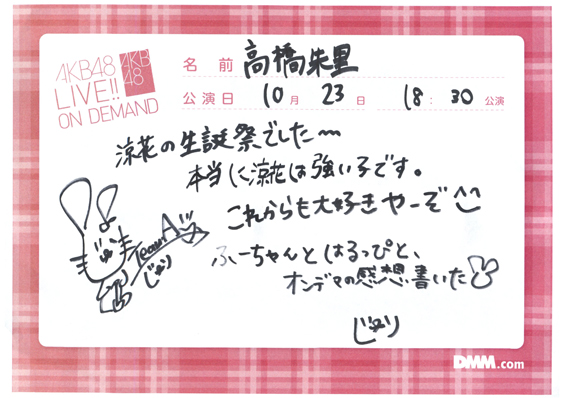 AKB48
LIVE!!
ON DEMAND
AKB
48
名前 高橋朱里
公演日 10月 23日 18:30公演
涼花の生誕祭でした〜
本当に涼花は強い子です。
これからも大好きやーぞ^^
ふーちゃんとはるっぴと、
オンデマの感想書いた
じゅり
TeamA
じゅり
じゅり
DMM.com